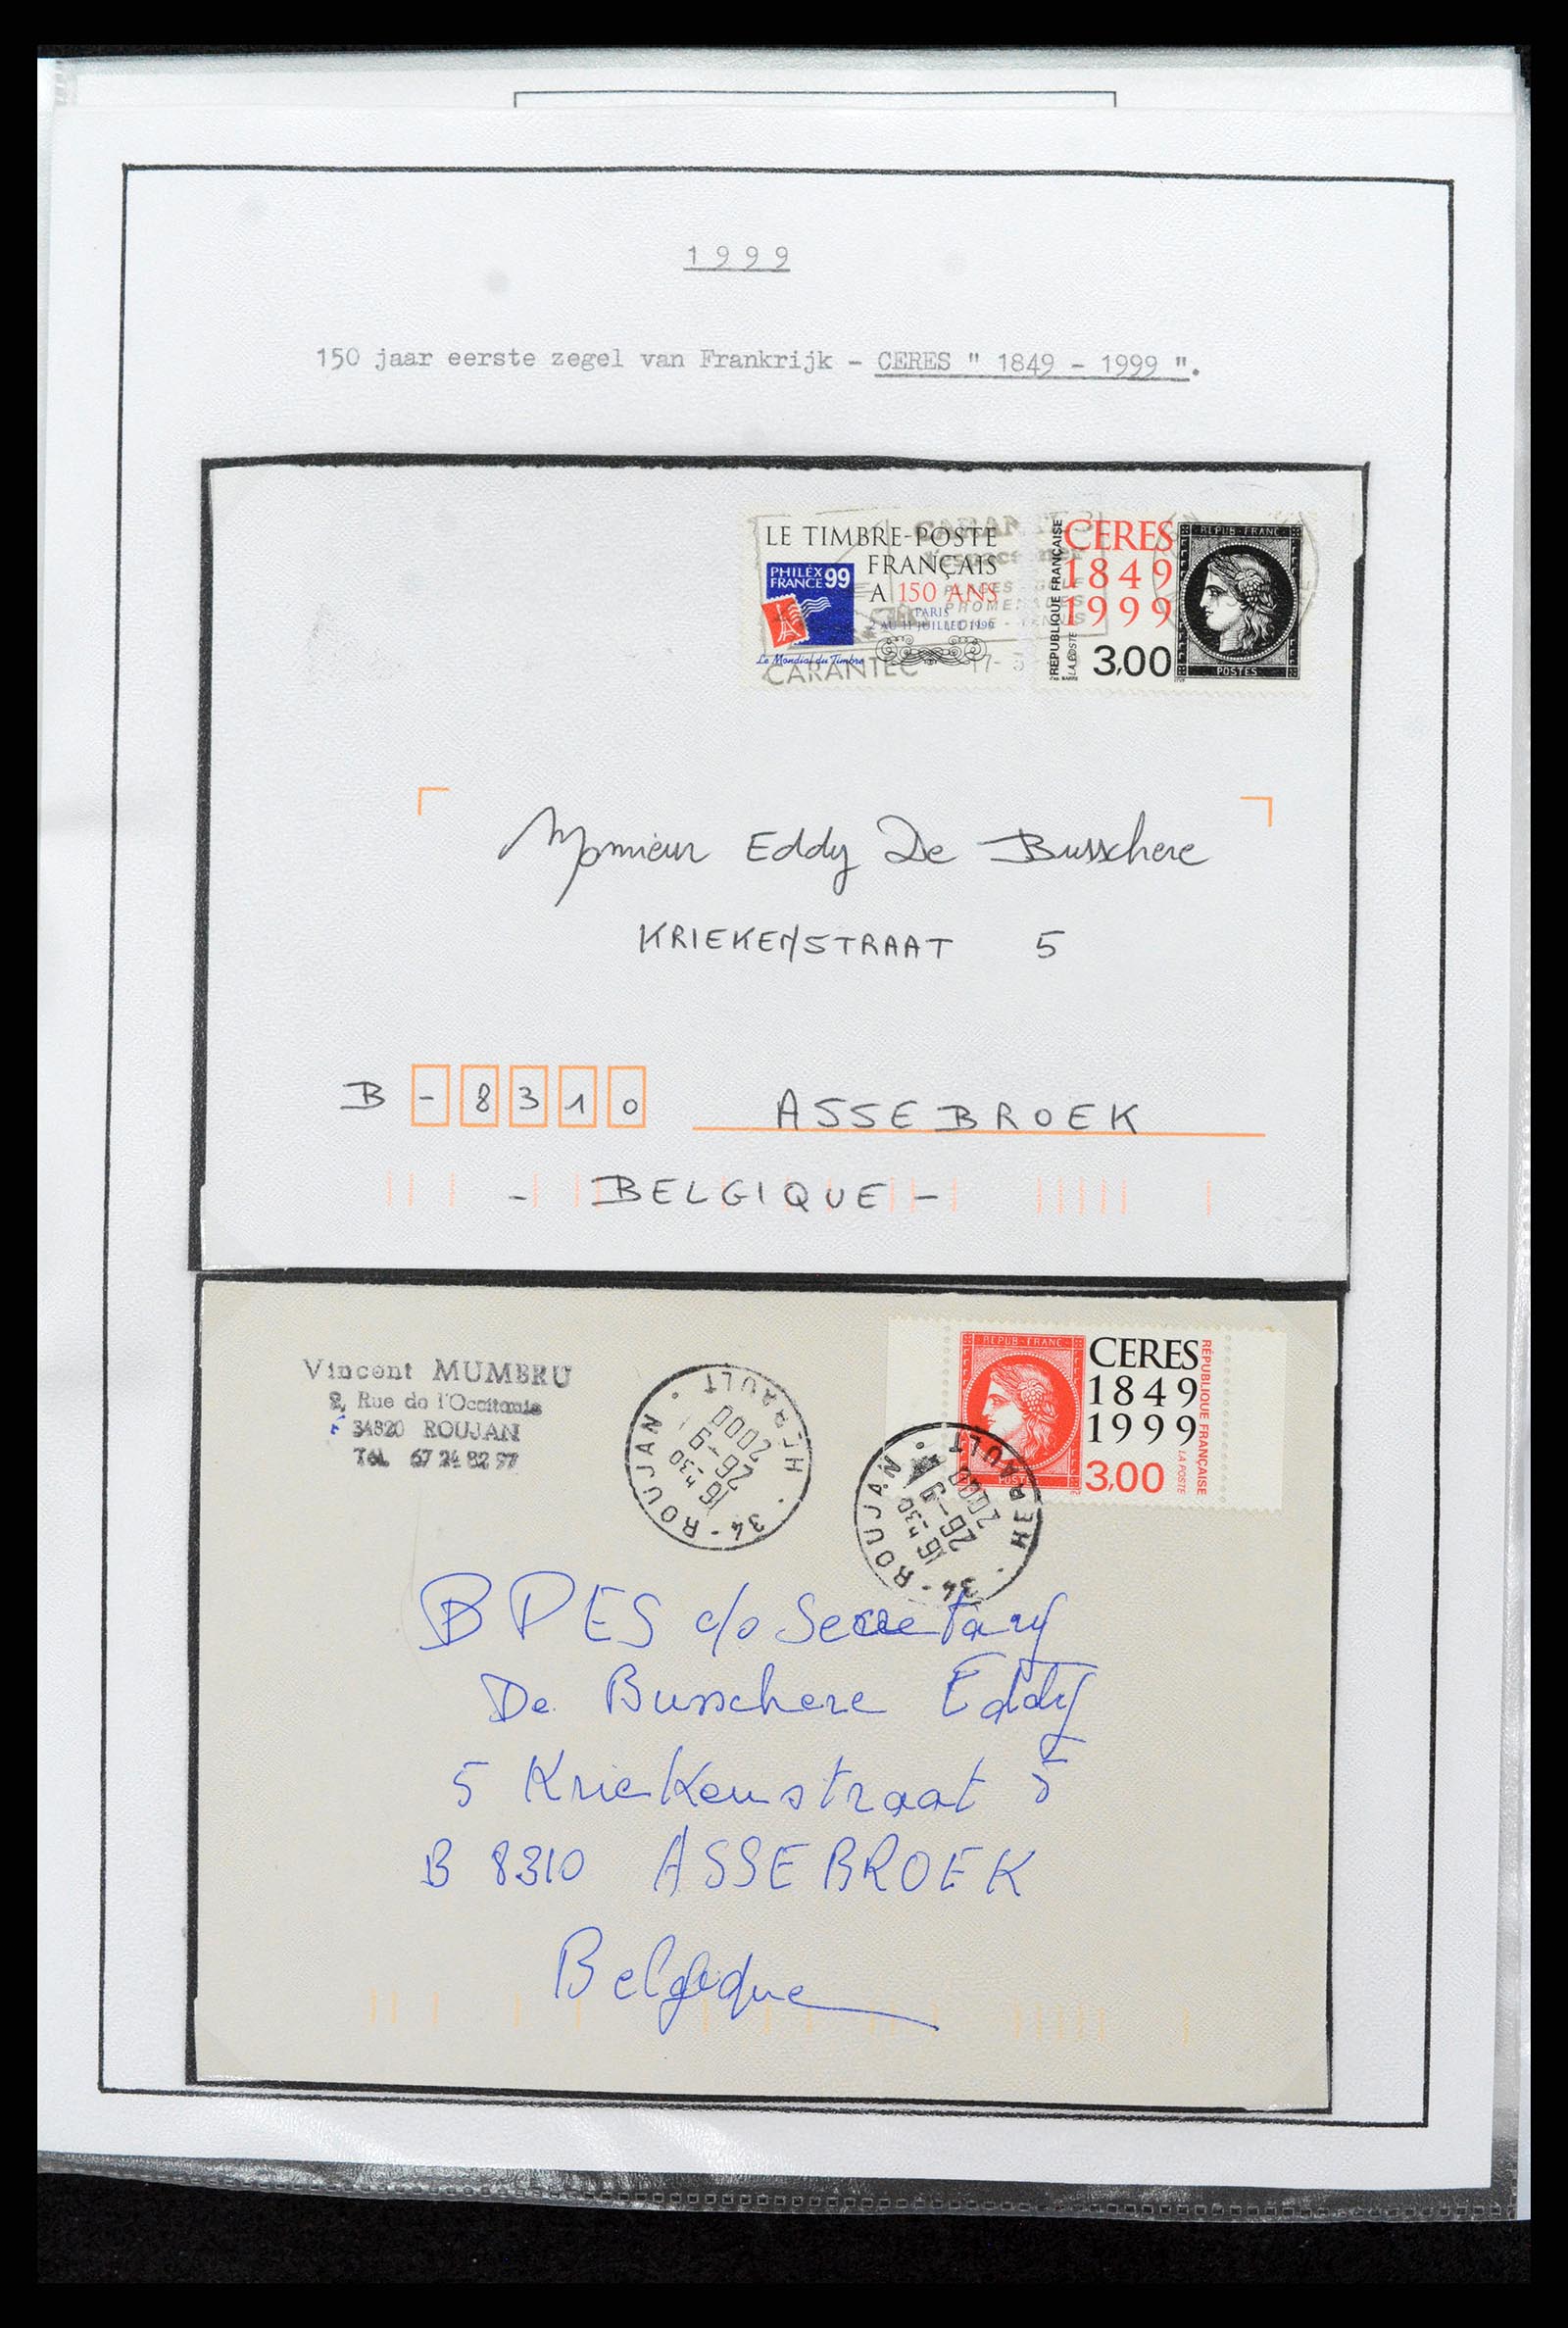 1999
150 jaar eerste zegel van Frankrijk - CERES " 1849 - 1999 ".
LE TIMBRE-POSTE
FRANÇAIS
A 150 ANS
PARIS
2 AU 11 JUILLET 1999
PHILEX
FRANCE 99
Le Mondial du Timbre
CARANTEC
17-
PROMENADES
RÉPUBLIQUE FRANÇAISE
LA POSTE
CERES
1849
1999
3,00
REPUB·FRANC·
POSTES
Monsieur Eddy De Busschere
KRIEKENSTRAAT 5
B - 8310 ASSEBROEK
- BELGIQUE -
Vincent MUMBRU
2, Rue de l'Occitanie
34320 ROUJAN
Tél. 67 24 82 97
34 - ROUJAN · HERAULT ·
16 H 30
26-9
2000
34 - ROUJAN · HERAULT ·
16 H 30
26-9
2000
REPUB·FRANC·
POSTES
CERES
1849
1999
3,00
RÉPUBLIQUE FRANÇAISE
LA POSTE
BPES c/o Secretary
De Busschere Eddy
5 Kriekenstraat 5
B 8310 ASSEBROEK
Belgique